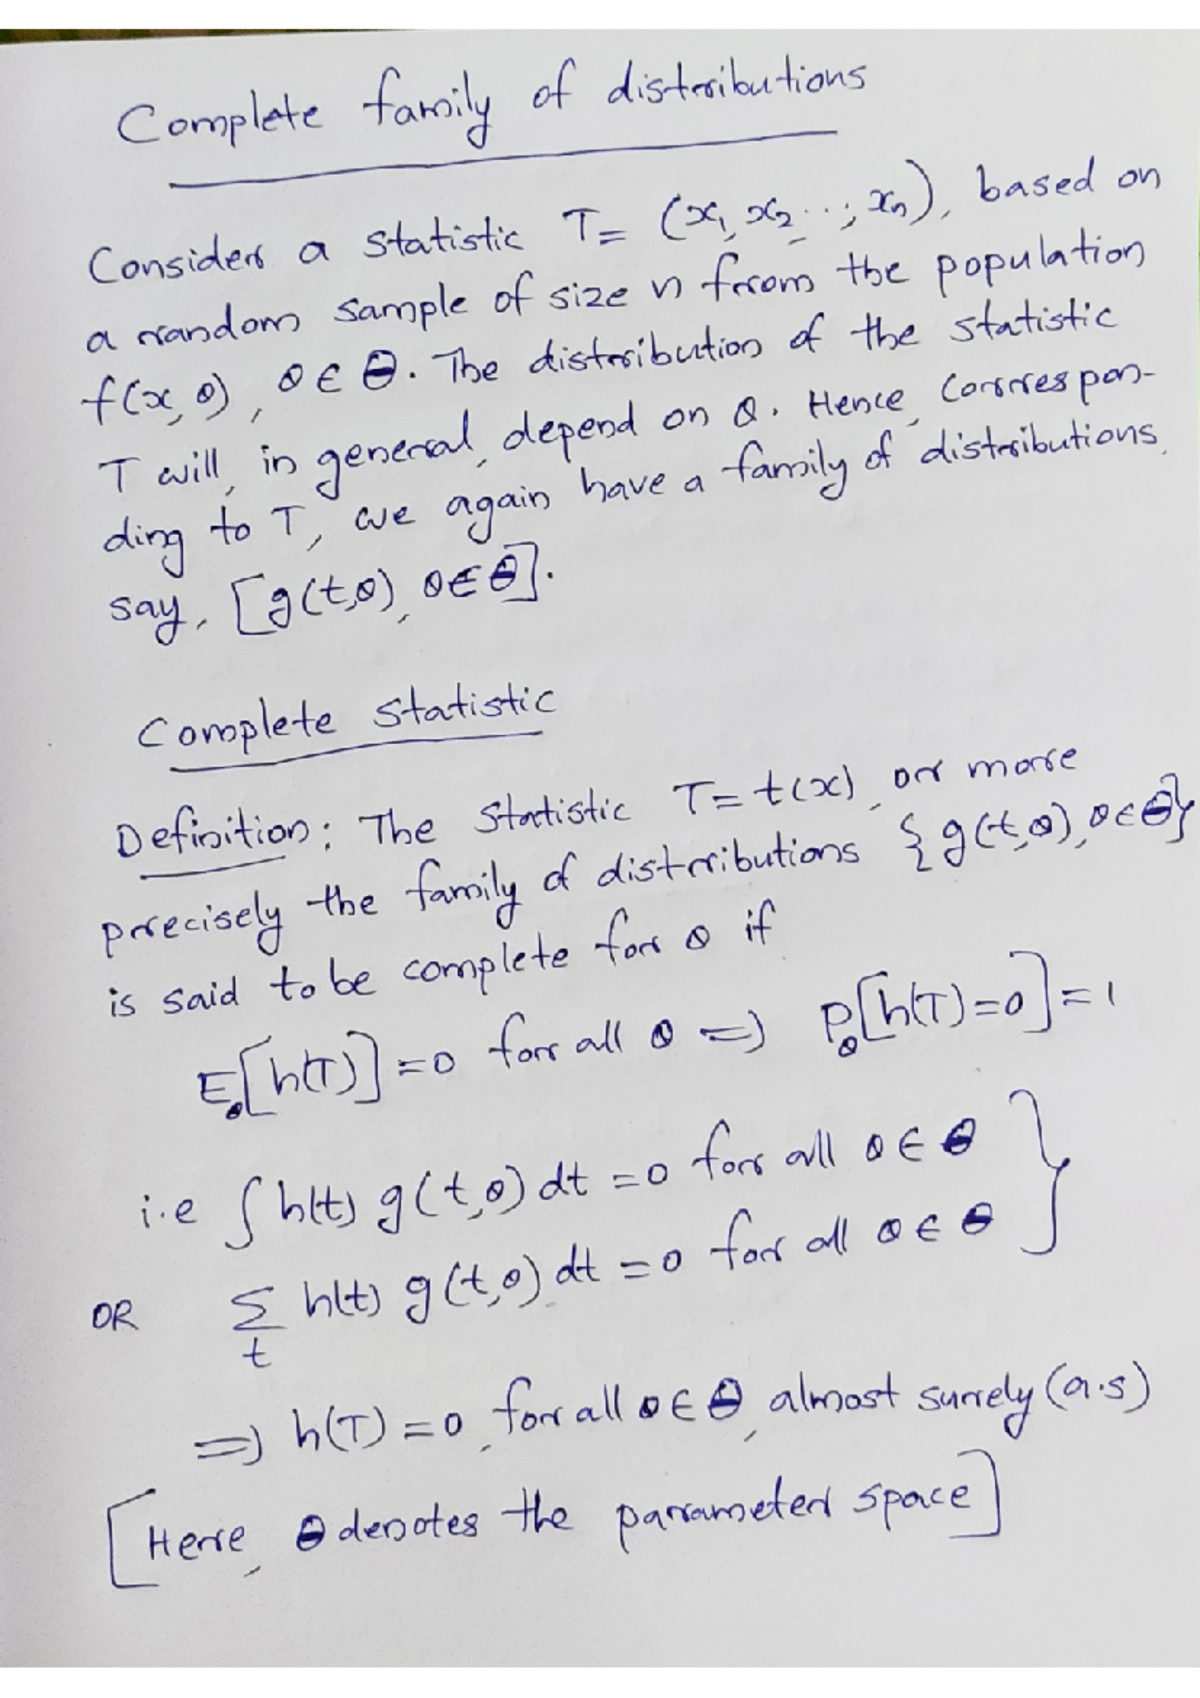 Complete family of distributions
Consider a statistic T= (x₁, x₂ ..., xₙ), based on
a random sample of size n from the population
f(x, θ), θ ∈ Θ. The distribution of the statistic
T will, in general, depend on θ. Hence, correspon-
ding to T, we again have a family of distributions,
say, [g(t,θ), θ∈Θ].
Complete statistic
Definition: The statistic T= t(x), or more
precisely the family of distributions {g(t,θ), θ∈Θ}
is said to be complete for θ if
E_θ[h(T)] =0 for all θ => P_θ[h(T)=0]=1
i.e ∫ h(t) g(t,θ) dt =0 for all θ ∈ Θ }
OR Σ_t h(t) g(t,θ) dt =0 for all θ ∈ Θ
=> h(T) =0, for all θ ∈ Θ, almost surely (a.s)
[Here, Θ denotes the parameter space]